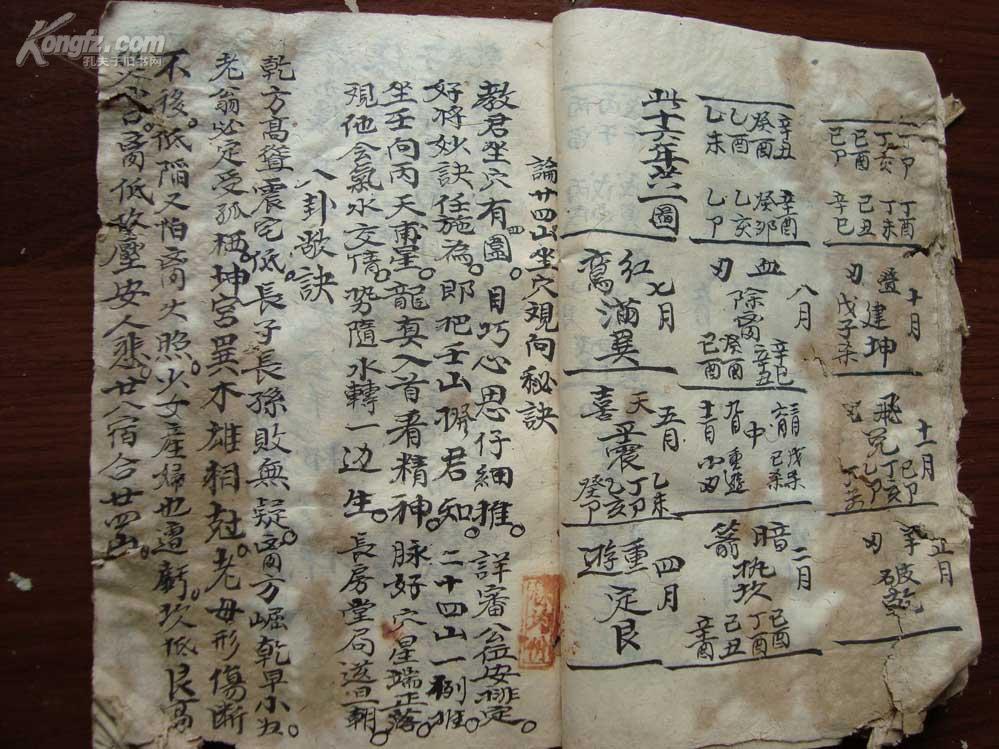 Kongfz.com
孔夫子旧书网
十月
建坤
戊子
十一月
飛
正月
破乾
丁亥
己酉
丁酉
丁未
己丑
辛巳
辛丑
癸酉
乙酉
乙未
辛酉
癸卯
乙亥
乙卯
八月
血刃
除离
辛巳
辛丑
癸酉
己酉
中
二月
暗箭
执
己酉
丁酉
己丑
辛酉
此十六年廿一圖
七月
紅鸞
滿巽
五月
天喜
平震
乙未
丁卯
乙亥
癸卯
四月
重遊
定艮
論廿四山坐穴観向秘訣
教君坐穴有四圖。目巧心思仔細推。詳審公位安排定。
好將妙訣任施為。即把壬山俻君知。二十四山一例推。
坐壬向丙天甫星。龍真入首看精神。脉好穴星端正落。
观他会氣水交情。势隨水轉一边生。長房堂局送目朝
八卦敲訣
乾方髙聳震宅低。長子長孫敗無疑。离方崛乾早小丑
老翁必定受孤栖。坤宮巽木雄相尅。老母形傷斷
不後。低陷又怕离火照。少女産婦也遭虧。坎低艮高
离低坎壓安人悲。廿八宿合廿四山。